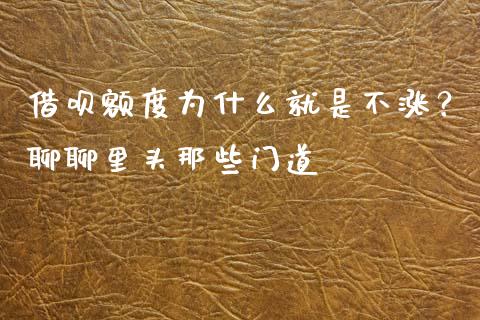 借呗额度为什么就是不涨？
聊聊里头那些门道